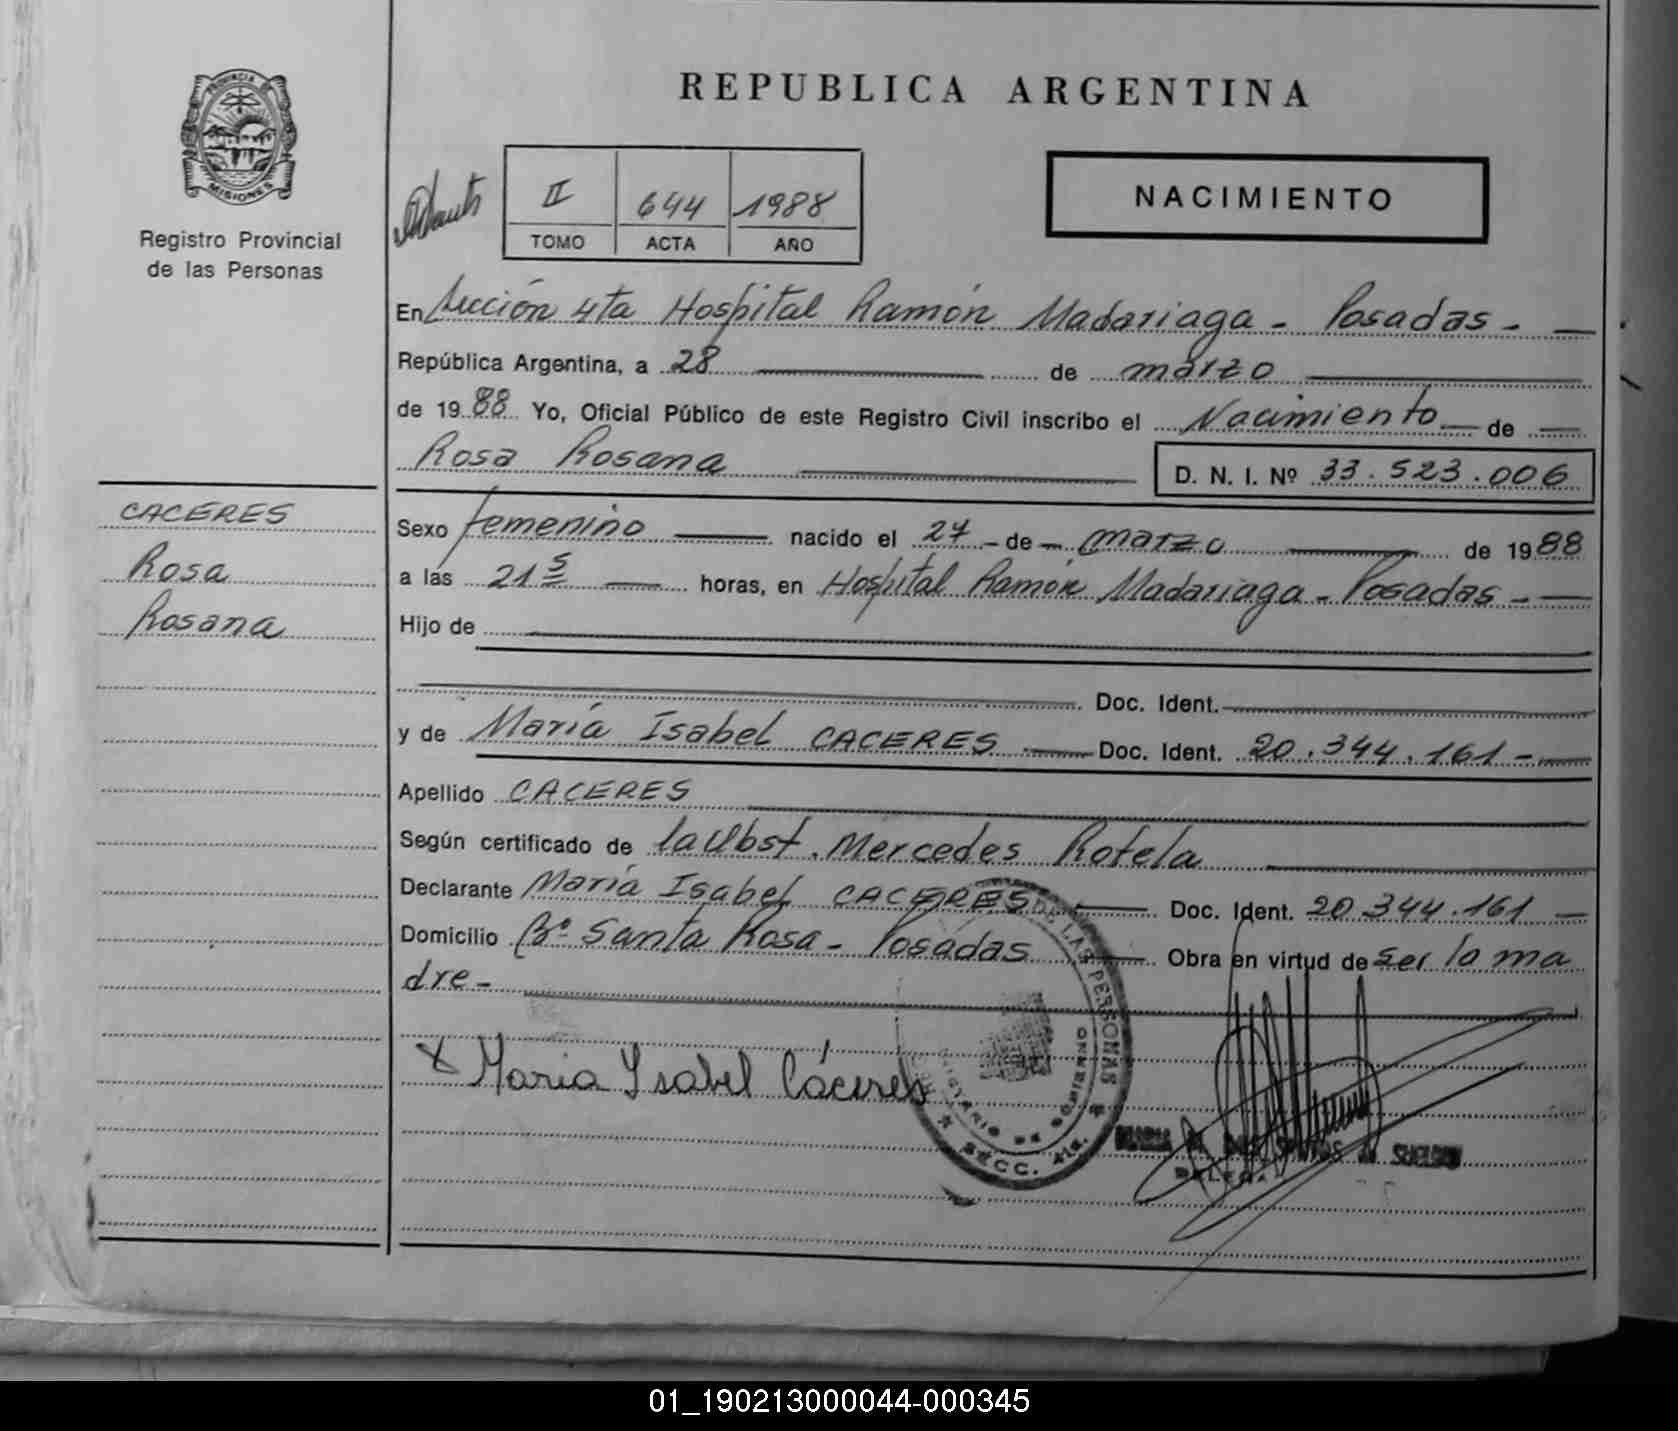 REPUBLICA ARGENTINA
PROVINCIA DE
MISIONES
Registro Provincial
de las Personas
II 644 1988
TOMO ACTA AÑO
NACIMIENTO
En Sección 4ta Hospital Ramón Madariaga - Posadas -
República Argentina, a 28 de marzo
de 1988 Yo, Oficial Público de este Registro Civil inscribo el Nacimiento de
Rosa Rosana D. N. I. Nº 33.523.006
CACERES
Rosa
Rosana
Sexo femenino nacido el 27 - de - marzo de 1988
a las 21 5 horas, en Hospital Ramón Madariaga - Posadas -
Hijo de
Doc. Ident.
y de María Isabel CACERES Doc. Ident. 20.344.161 -
Apellido CACERES
Según certificado de la Obst. Mercedes Rotela
Declarante María Isabel CACERES Doc. Ident. 20.344.161
Domicilio Bº Santa Rosa - Posadas Obra en virtud de ser la ma
dre -
x Maria Ysabel Cáceres
DE LAS PERSONAS
SECC. 4ta.
01_190213000044-000345